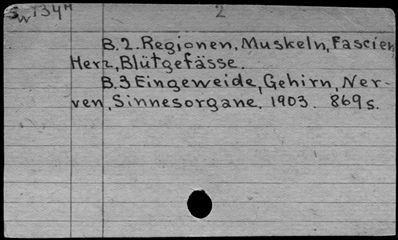 Sw 134H 2
B.2. Regionen, Muskeln, Fascien,
Herz, Blütgefässe.
B.3 Eingeweide, Gehirn, Ner-
ven, Sinnesorgane. 1903. 869s.